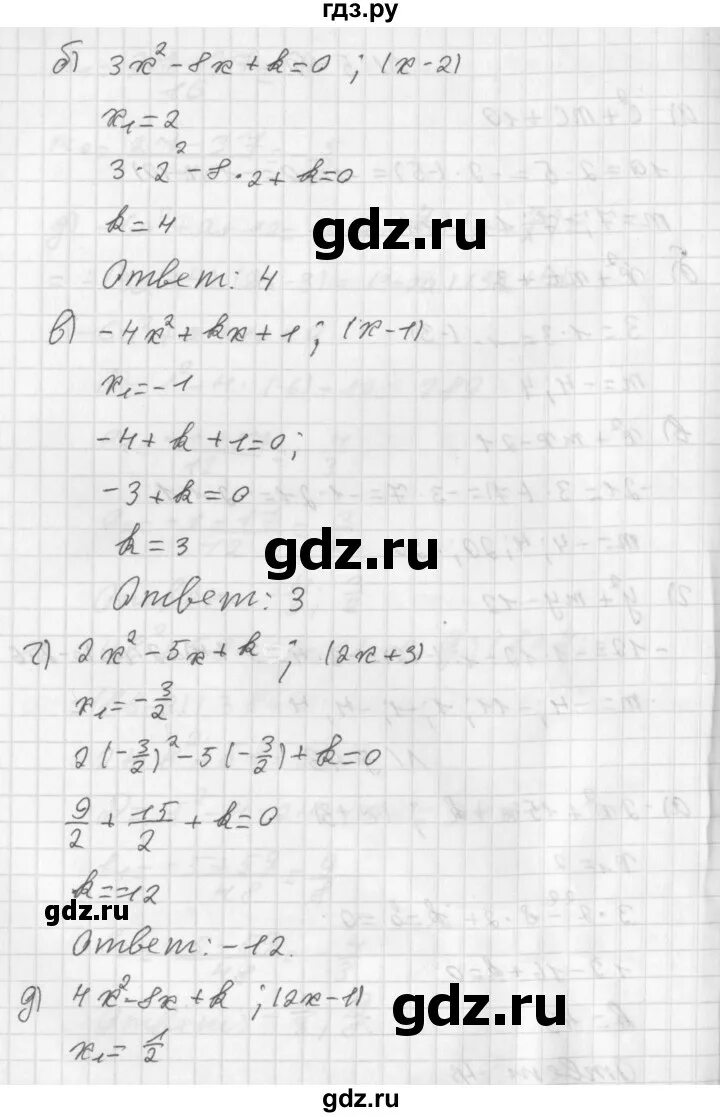 гдз.ру
б) 3x² - 8x + k = 0 ; (x-2)
x₁ = 2
3·2² - 8·2 + k = 0
k = 4
gdz.ru
Ответ: 4
в) -4x² + kx + 1 ; (x-1)
x₁ = -1
-4 + k + 1 = 0;
-3 + k = 0
k = 3
gdz.ru
Ответ: 3
г) 2x² - 5x + k ; (2x+3)
x₁ = -3/2
2(-3/2)² - 5(-3/2) + k = 0
9/2 + 15/2 + k = 0
k = -12
gdz.ru
Ответ: -12.
д) 4x² - 8x + k ; (2x-1)
gdz.ru
x₁ = 1/2
gdz.ru